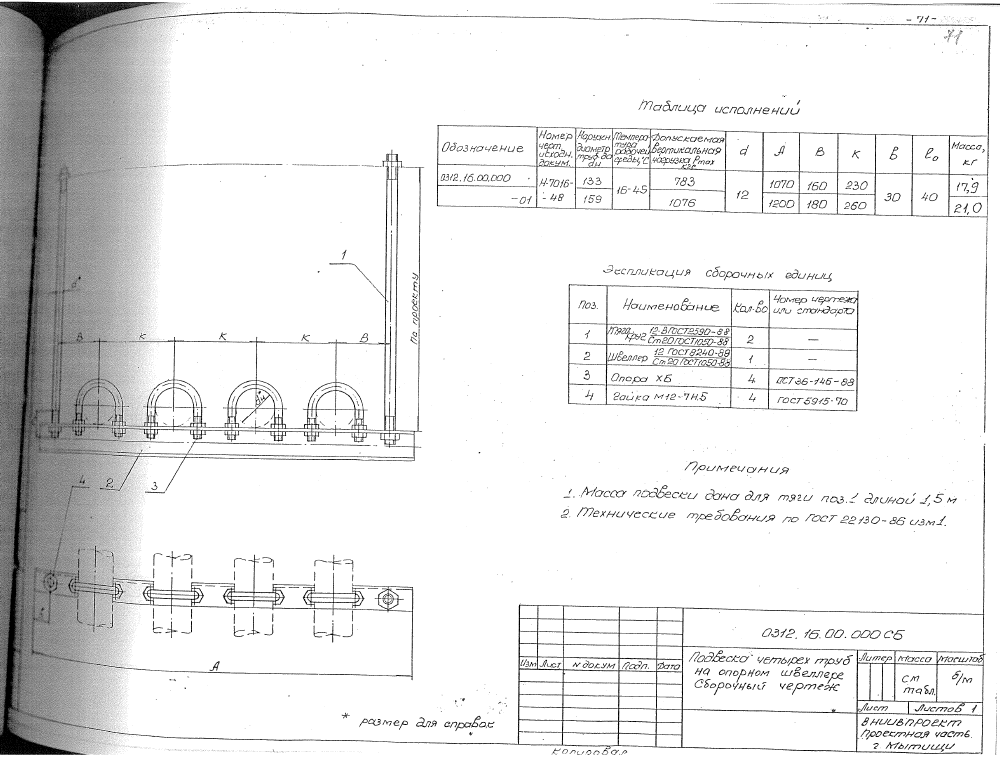 - 71 -
71
Таблица исполнений
Обозначение
Номер черт. исходн. докум.
Наружн. диаметр труб до dн
Температура рабочей среды, °С
Допускаемая вертикальная нагрузка Pmax кгс
d
A
B
K
b
l₀
Масса, кг
0312.16.00.000
-01
Н-7016-
-48
133
159
16-45
783
1076
12
1070
160
230
1200
180
260
30
40
17,9
21,0
Экспликация сборочных единиц
Поз.
Наименование
Кол-во
Номер чертежа или стандарта
1
Тяга Круг 12-В ГОСТ 2590-88 Ст20 ГОСТ 1050-88
2
—
2
Швеллер 12 ГОСТ 8240-89 Ст20 ГОСТ 1050-88
1
—
3
Опора ХБ
4
ОСТ 36-146-88
4
Гайка М12-7Н.5
4
ГОСТ 5915-70
1
по проекту
d*
В
К
К
К
В
dн
4
2
3
А
Примечания
1. Масса подвески дана для тяги поз.1 длиной 1,5 м
2. Технические требования по ГОСТ 22130-86 изм1.
* размер для справок
0312.16.00.000 СБ
Изм
Лист
N докум
Подп.
Дата
Подвеска четырех труб
на опорном швеллере
Сборочный чертеж
Литер
Масса
Масштаб
см
табл.
б/м
Лист
Листов 1
ВНИИвпроект
Проектная часть
г Мытищи
Копировал